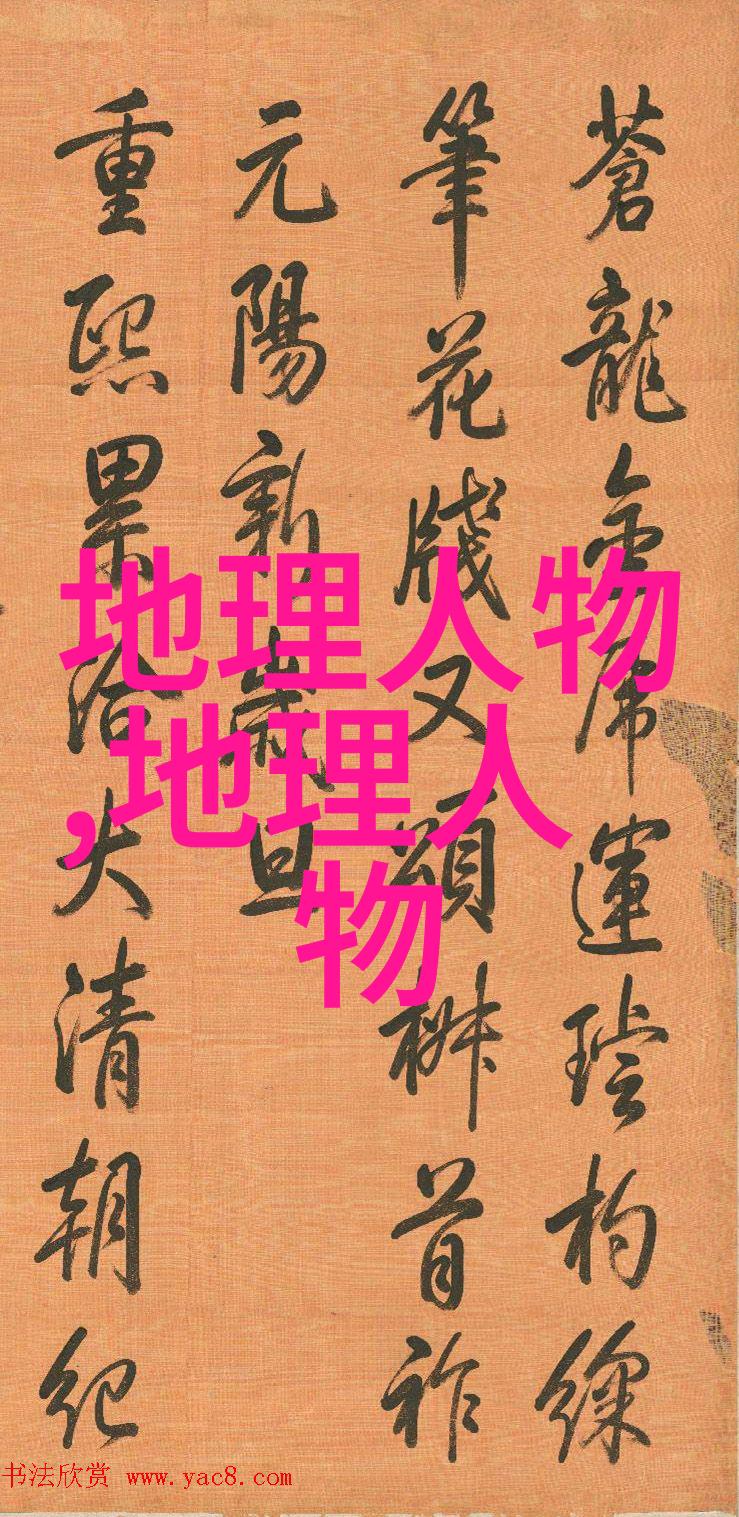 蒼龍金虎運璿杓綵
筆花牋又頌椒首祚
元陽新歲旦
重熙累洽大清朝紀
地理人物
,地理人
物
书法欣赏 www.yac8.com